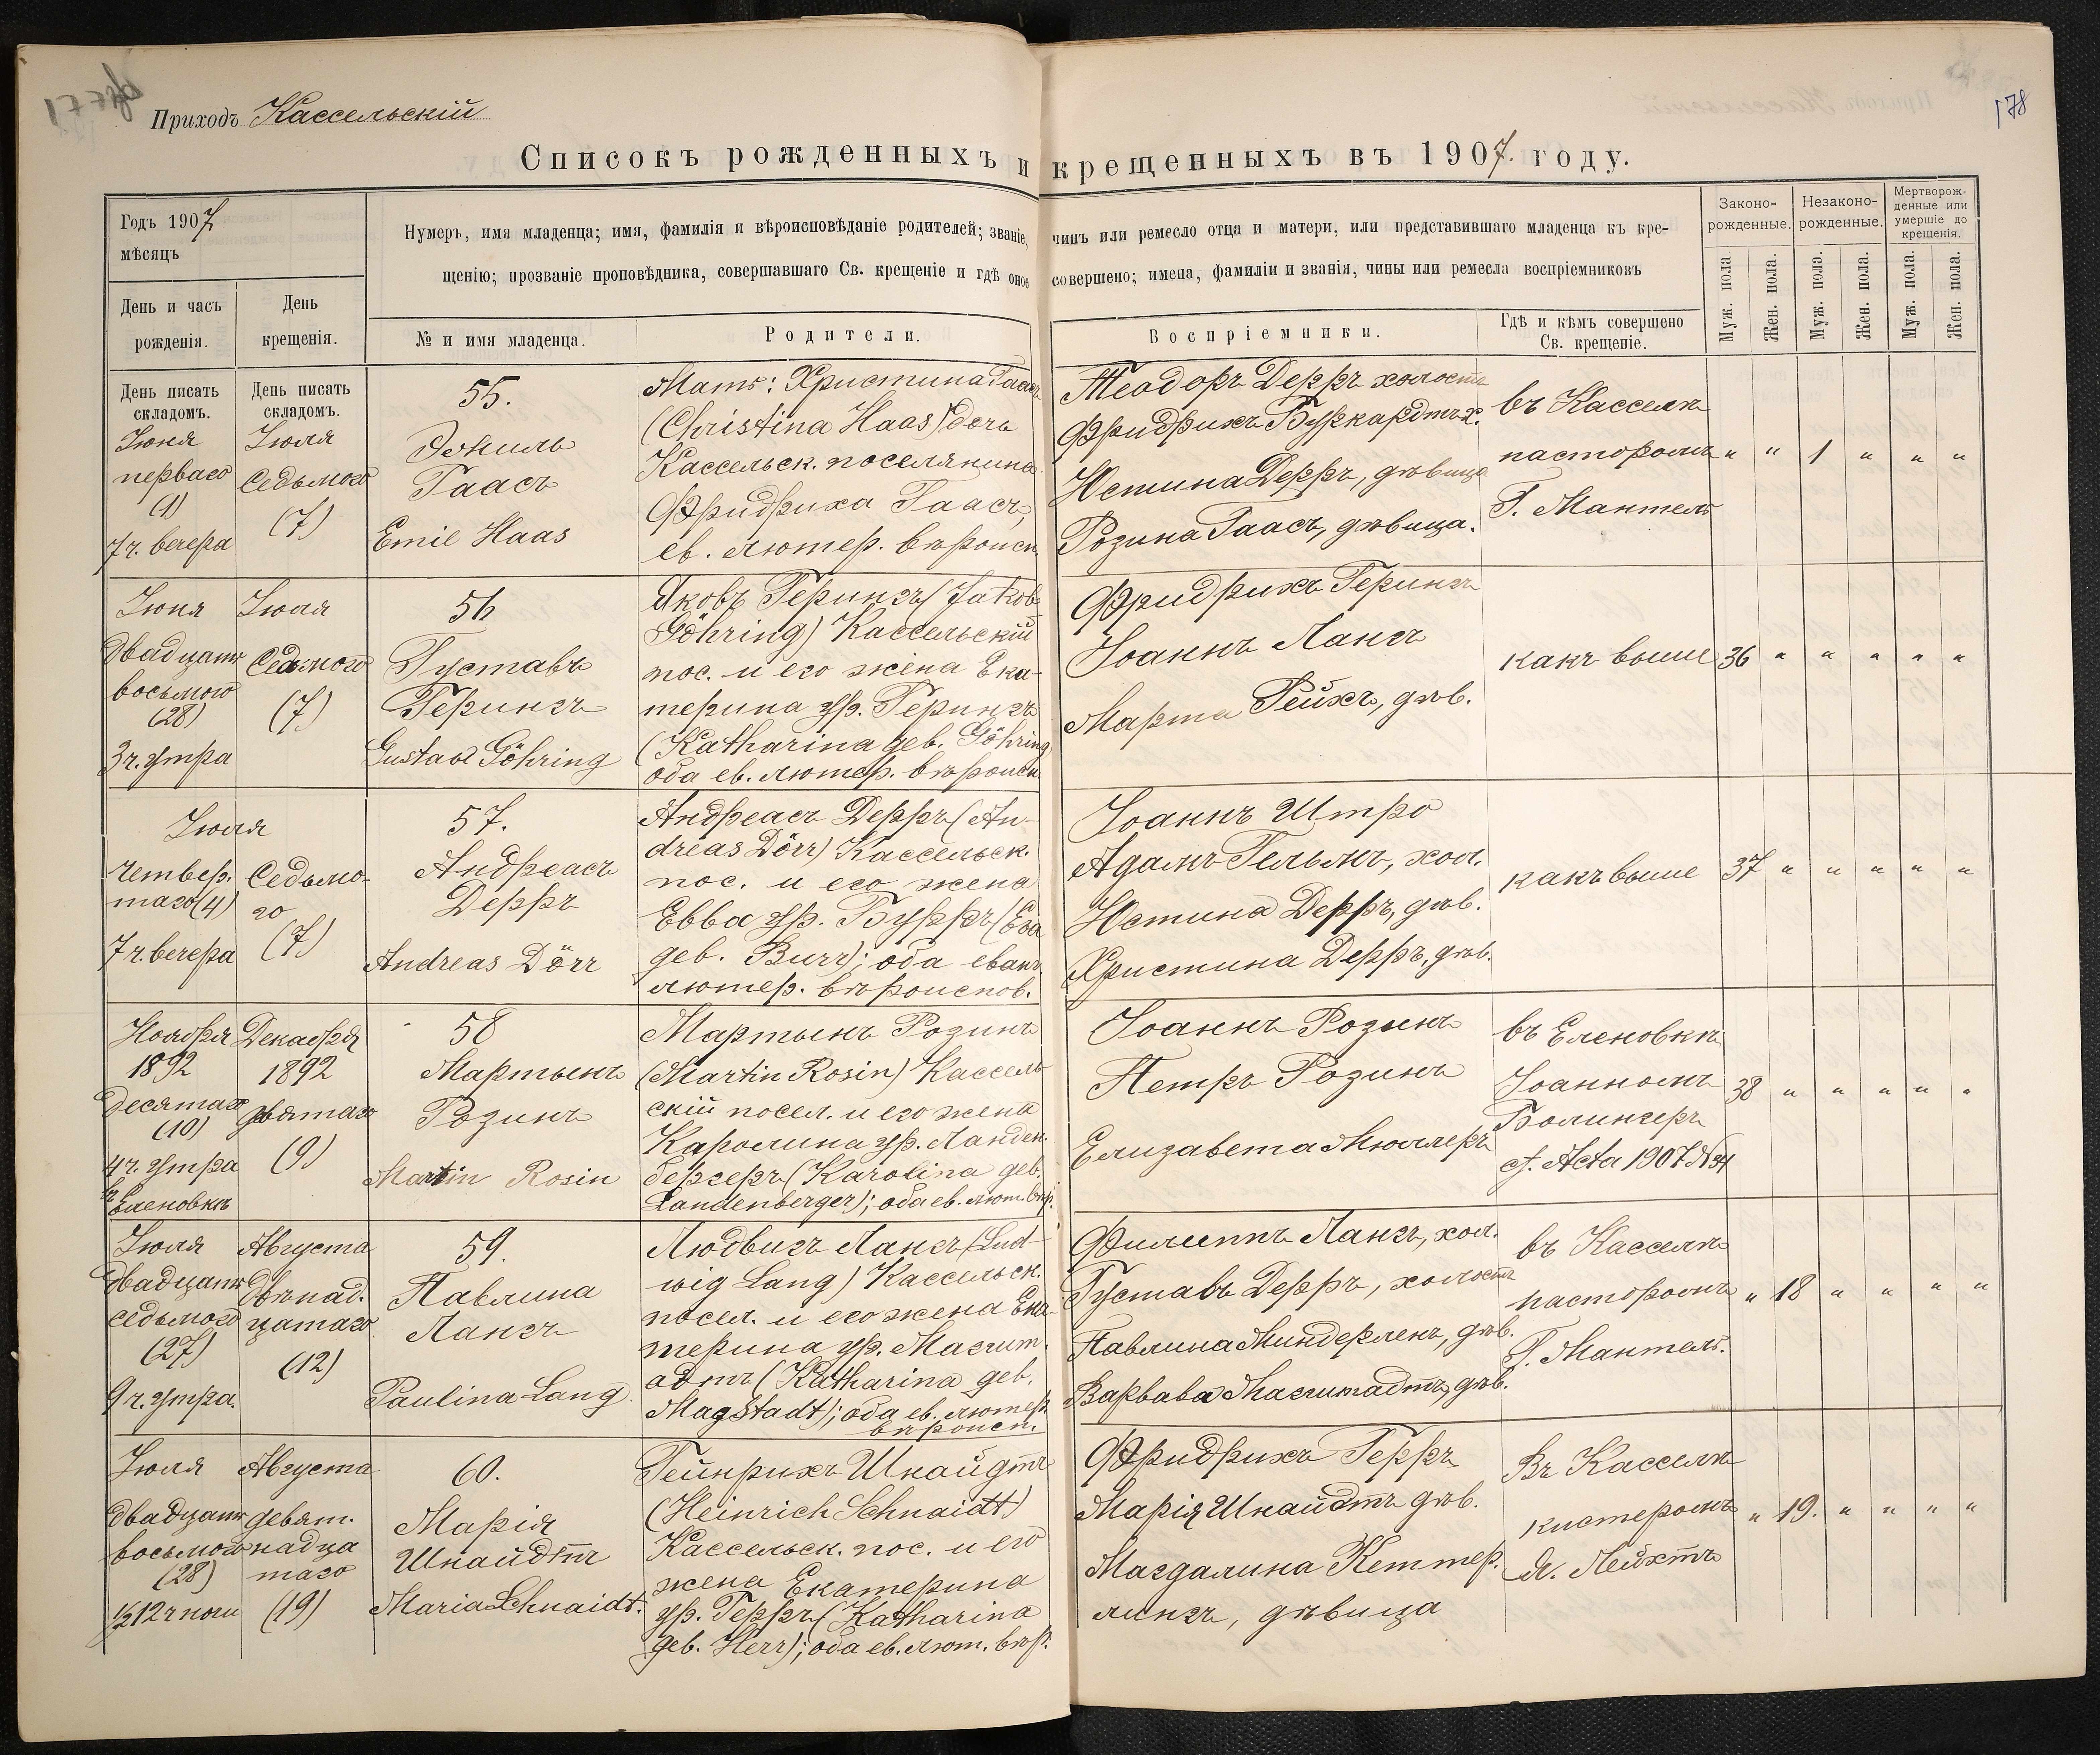 Приходъ Кассельскій
178
Списокъ рожденныхъ и крещенныхъ въ 1907. году.
Годъ 1907
мѣсяцъ
День и часъ
рожденія.
День
крещенія.
Нумеръ, имя младенца; имя, фамилія и вѣроисповѣданіе родителей; званіе, чинъ или ремесло отца и матери, или представившаго младенца къ кре-
щенію; прозваніе проповѣдника, совершавшаго Св. крещеніе и гдѣ оное совершено; имена, фамиліи и званія, чины или ремесла воспріемниковъ
№ и имя младенца.
Родители.
Воспріемники.
Гдѣ и кѣмъ совершено
Св. крещеніе.
Законо-
рожденные.
Незаконо-
рожденные.
Мертворож-
денные или
умершіе до
крещенія.
Муж. пола
Жен. пола.
Муж. пола.
Жен. пола.
Муж. пола.
Жен. пола.
День писать
складомъ.
Іюня
перваго
(1)
7 ч. вечера
День писать
складомъ.
Іюля
Седьмого
(7)
55.
Эмиль
Гаасъ
Emil Haas
Мать: Христина Гаасъ
(Christina Haas) дочь
Кассельск. поселянина
Фридриха Гаасъ,
ев. лютер. вѣроисп.
Теодоръ Дерръ холостъ
Фридрихъ Буркардтъ х.
Юстина Дерръ, дѣвица
Розина Гаасъ, дѣвица.
въ Касселѣ
пасторомъ
Г. Мантель
" " 1 " " "
Іюня
двадцать
восьмого
(28)
3 ч. утра
Іюля
Седьмого
(7)
56
Густавъ
Герингъ
Gustav Göhring
Яковъ Герингъ (Jakob
Göhring) Кассельскій
пос. и его жена Ека-
терина ур. Герингъ
(Katharina geb. Göhring
оба ев. лютер. вѣроисп.
Фридрихъ Герингъ
Іоаннъ Лангъ
Марта Рейхъ, дѣв.
какъ выше
36 " " " " "
Іюля
четвер.
таго (4)
7 ч. вечера
Седьмо-
го
(7)
57.
Андреасъ
Дерръ
Andreas Dörr
Андреасъ Дерръ (An-
dreas Dörr) Кассельск.
пос. и его жена
Евва ур. Бурръ (Eva
geb. Burr); оба еванг.
лютер. вѣроиспов.
Іоаннъ Штро
Адамъ Гельмъ, хол.
Юстина Дерръ, дѣв.
Христина Дерръ, дѣв.
какъ выше
37 " " " " "
Ноября
1892
десятаго
(10)
4 ч. утра
въ Еленовкѣ
Декабря
1892
девятаго
(9)
58
Мартынъ
Розинъ
Martin Rosin
Мартынъ Розинъ
(Martin Rosin) Кассель
скій посел. и его жена
Каролина ур. Ланден.
бергеръ (Karolina geb.
Landenberger); оба ев. лют. вѣр.
Іоаннъ Розинъ
Петръ Розинъ
Елизавета Мюллеръ
въ Еленовкѣ
Іоанномъ
Болингеръ
cf. Acta 1907 № 34
38 " " " " "
Іюля
двадцать
седьмого
(27)
9 ч. утра.
Августа
двѣнад.
цатаго
(12)
59.
Павлина
Лангъ
Paulina Lang
Людвигъ Лангъ (Lud
wig Lang) Кассельск.
посел. и его жена Ека-
терина ур. Магшт.
адтъ (Katharina geb.
Magstadt); оба ев. лютер.
вѣроисп.
Филиппъ Лангъ, хол.
Густавъ Дерръ, холостъ
Павлина Миндерленъ, дѣв.
Варвава Магштадтъ, дѣв.
въ Касселѣ
пасторомъ
Г. Мантель.
" 18 " " " "
Іюля
двадцать
восьмого
(28)
½12 ч ночи
Августа
девят.
надца
таго
(19)
60.
Марія
Шнайдтъ
Maria Schnaidt.
Гейнрихъ Шнайдтъ
(Heinrich Schnaidt)
Кассельск. пос. и его
жена Екатерина
ур. Герръ (Katharina
geb. Herr); оба ев. лют. вѣр.
Фридрихъ Герръ
Марія Шнайдтъ дѣв.
Магдалина Кеттер.
лингъ, дѣвица
Въ Касселѣ
кистеромъ
Я. Лейхтъ
" 19. " " " "